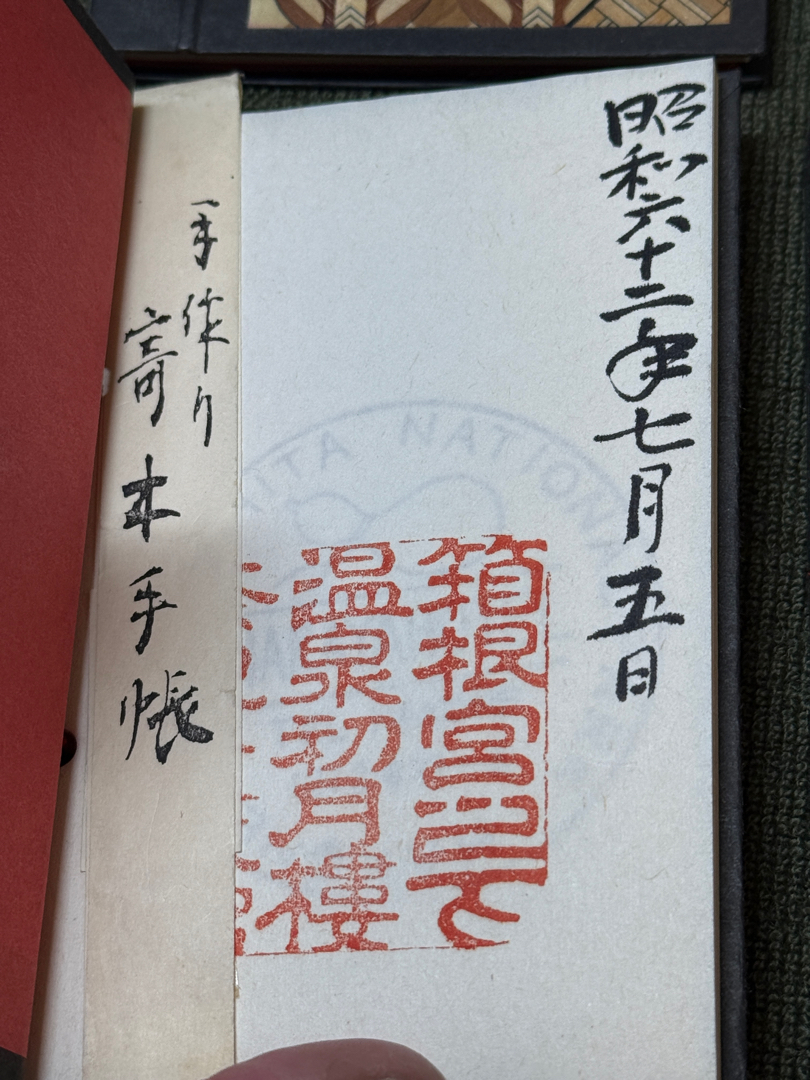 昭和六十二年七月五日
箱根宮下
温泉初月樓
手作り
寄木手帳